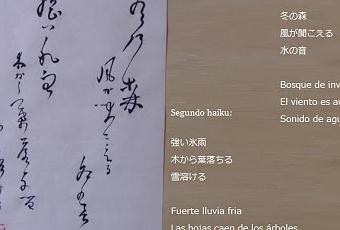 冬の森
風が聞こえる
水の音
強い氷雨
木から葉落ちる
冬の森
風が聞こえる
水の音
Bosque de inv
El viento es au
Sonido de agu
Segundo haiku:
強い氷雨
木から葉落ちる
雪溶ける
Fuerte lluvia fria
Las hojas caen de los árboles